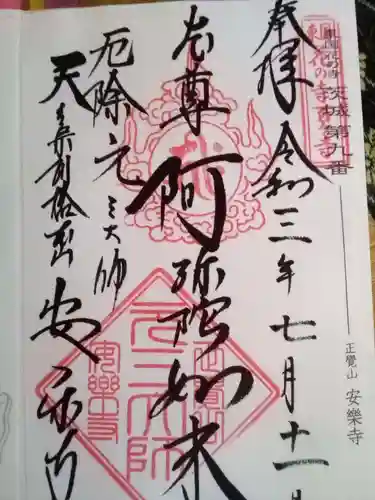 東国花の寺 茨城第九番
正覺山 安樂寺
奉拝 令和三年七月十一日
本尊 阿弥陀如来
厄除元三大師
安楽寺
元三大師
安樂寺